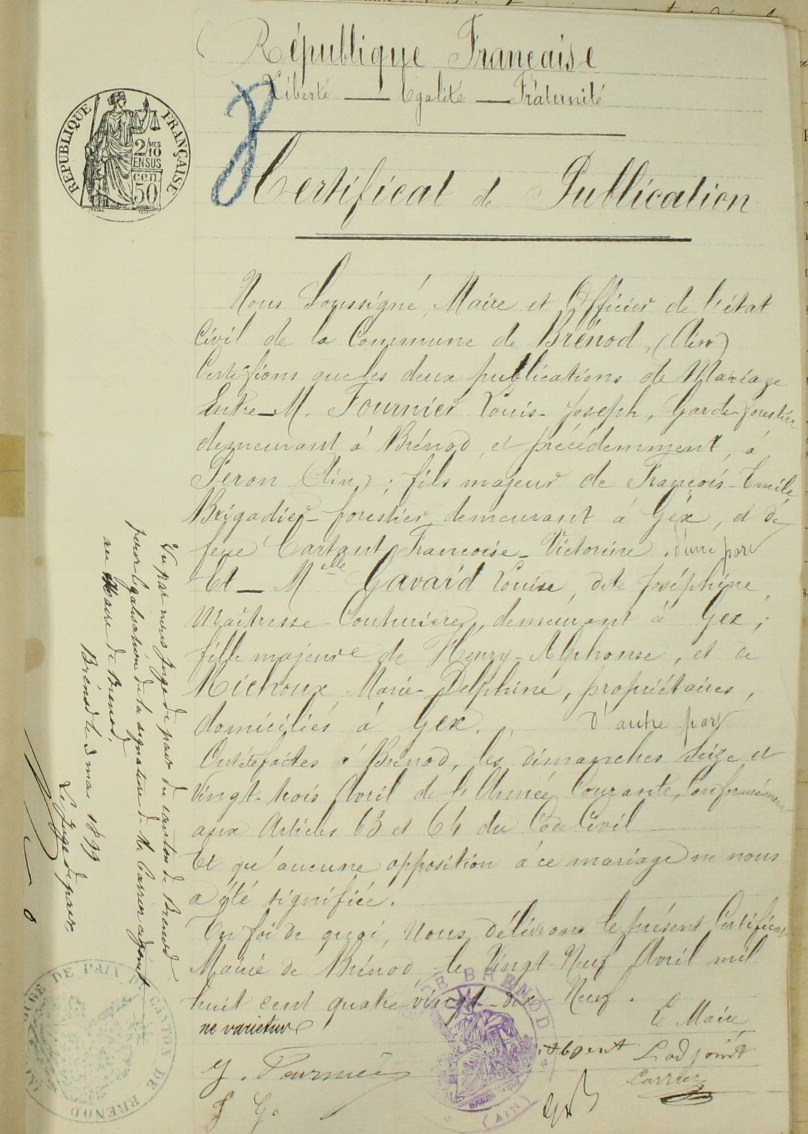 République Française
Liberté — Egalité — Fraternité
RÉPUBLIQUE FRANÇAISE
2/10 EN SUS
50 cen
8
Certificat de Publication
Nous Soussigné, Maire et Officier de l'état
Civil de la Commune de Brénod, (Ain)
Certifions que les deux publications de Mariage
Entre M. Fournier Louis-Joseph, Garde-forestier
demeurant à Brénod, et précédemment, à
Péron (Ain); fils majeur de François-Emile
Brigadier-forestier demeurant à Gex, et de
feue Cartant Françoise-Victorine. d'une part
Et — Melle Gavard Louise, dite Joséphine,
Maîtresse-Couturière, demeurant à Gex;
fille majeure de Henry-Alphonse, et de
Michoux Marie-Delphine, propriétaires,
domiciliés à Gex. d'autre part
Ont été faites à Brénod, les dimanches Seize et
Vingt-trois Avril de l'Année Courante, Conformément
aux Articles 63 et 64 du Code Civil
Et qu'aucune opposition à ce mariage ne nous
a été signifiée.
En foi de quoi, Nous délivrons le présent Certificat
Mairie de Brénod, le Vingt-Neuf Avril mil
huit cent quatre vingt-dix-Neuf.
ne varietur
Le Maire
absent L'adjoint
Carrier
J. Fournier
J G.
DE BRENOD
(AIN)
Vu par nous Juge de paix du canton de Brenod
pour légalisation de la signature de Mr Carrier adjoint
au Maire de Brenod.
Brenod le 3 mai 1899
Le Juge de paix,
JUGE DE PAIX DU CANTON DE BRENOD